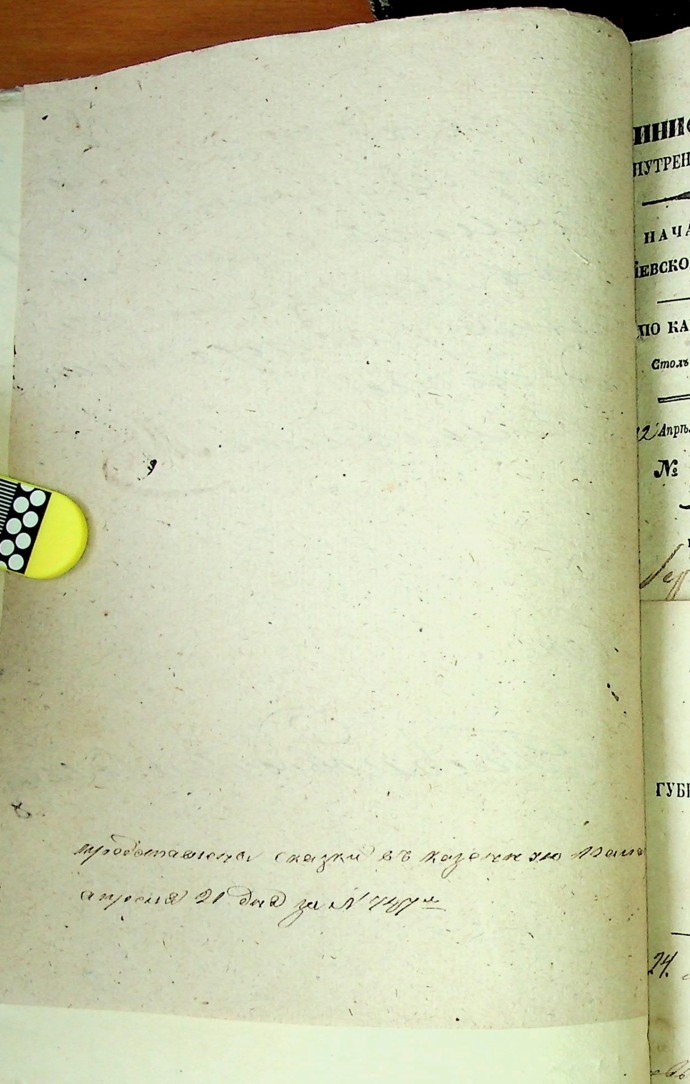 представлены сказки въ казенную Пала
апреля 21 дня за №
ИНИС
НУТРЕН
НАЧА
ІЕВСКО
ПО КА
Столъ
12 Апрѣ
№
ГУБЕ
24.